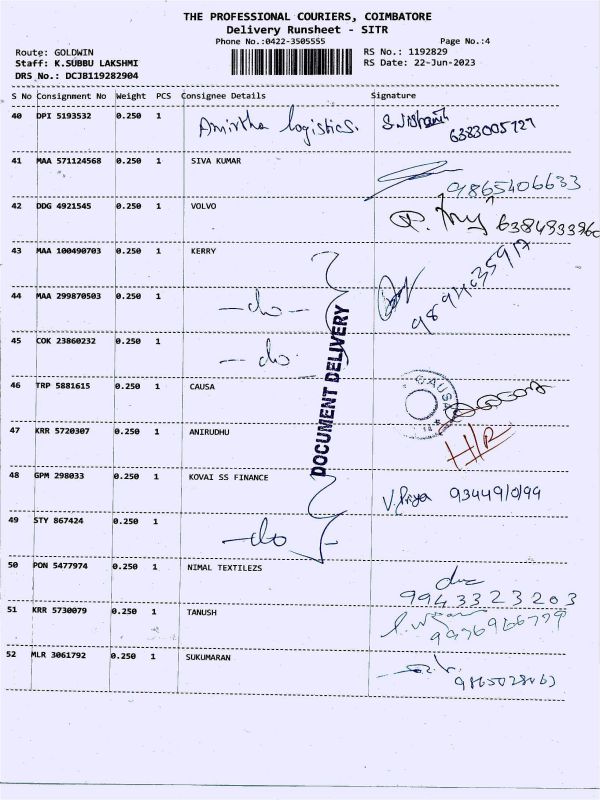 THE PROFESSIONAL COURIERS, COIMBATORE
Delivery Runsheet - SITR
Phone No.:0422-3505555 Page No.:4
Route: GOLDWIN RS No.: 1192829
Staff: K.SUBBU LAKSHMI RS Date: 22-Jun-2023
DRS No.: DCJB119282904
S No Consignment No Weight PCS Consignee Details Signature
40 DPI 5193532 0.250 1 Amirtha logistics. 6383005727
41 MAA 571124568 0.250 1 SIVA KUMAR 9865406633
42 DDG 4921545 0.250 1 VOLVO
43 MAA 100490703 0.250 1 KERRY
44 MAA 299870503 0.250 1 -do-
45 COK 23860232 0.250 1 -do-
46 TRP 5881615 0.250 1 CAUSA CAUSA
47 KRR 5720307 0.250 1 ANIRUDHU
DOCUMENT DELIVERY
48 GPM 298033 0.250 1 KOVAI SS FINANCE V. Priya
49 STY 867424 0.250 1 -do
50 PON 5477974 0.250 1 NIMAL TEXTILEZS 9943323203
51 KRR 5730079 0.250 1 TANUSH
52 MLR 3061792 0.250 1 SUKUMARAN